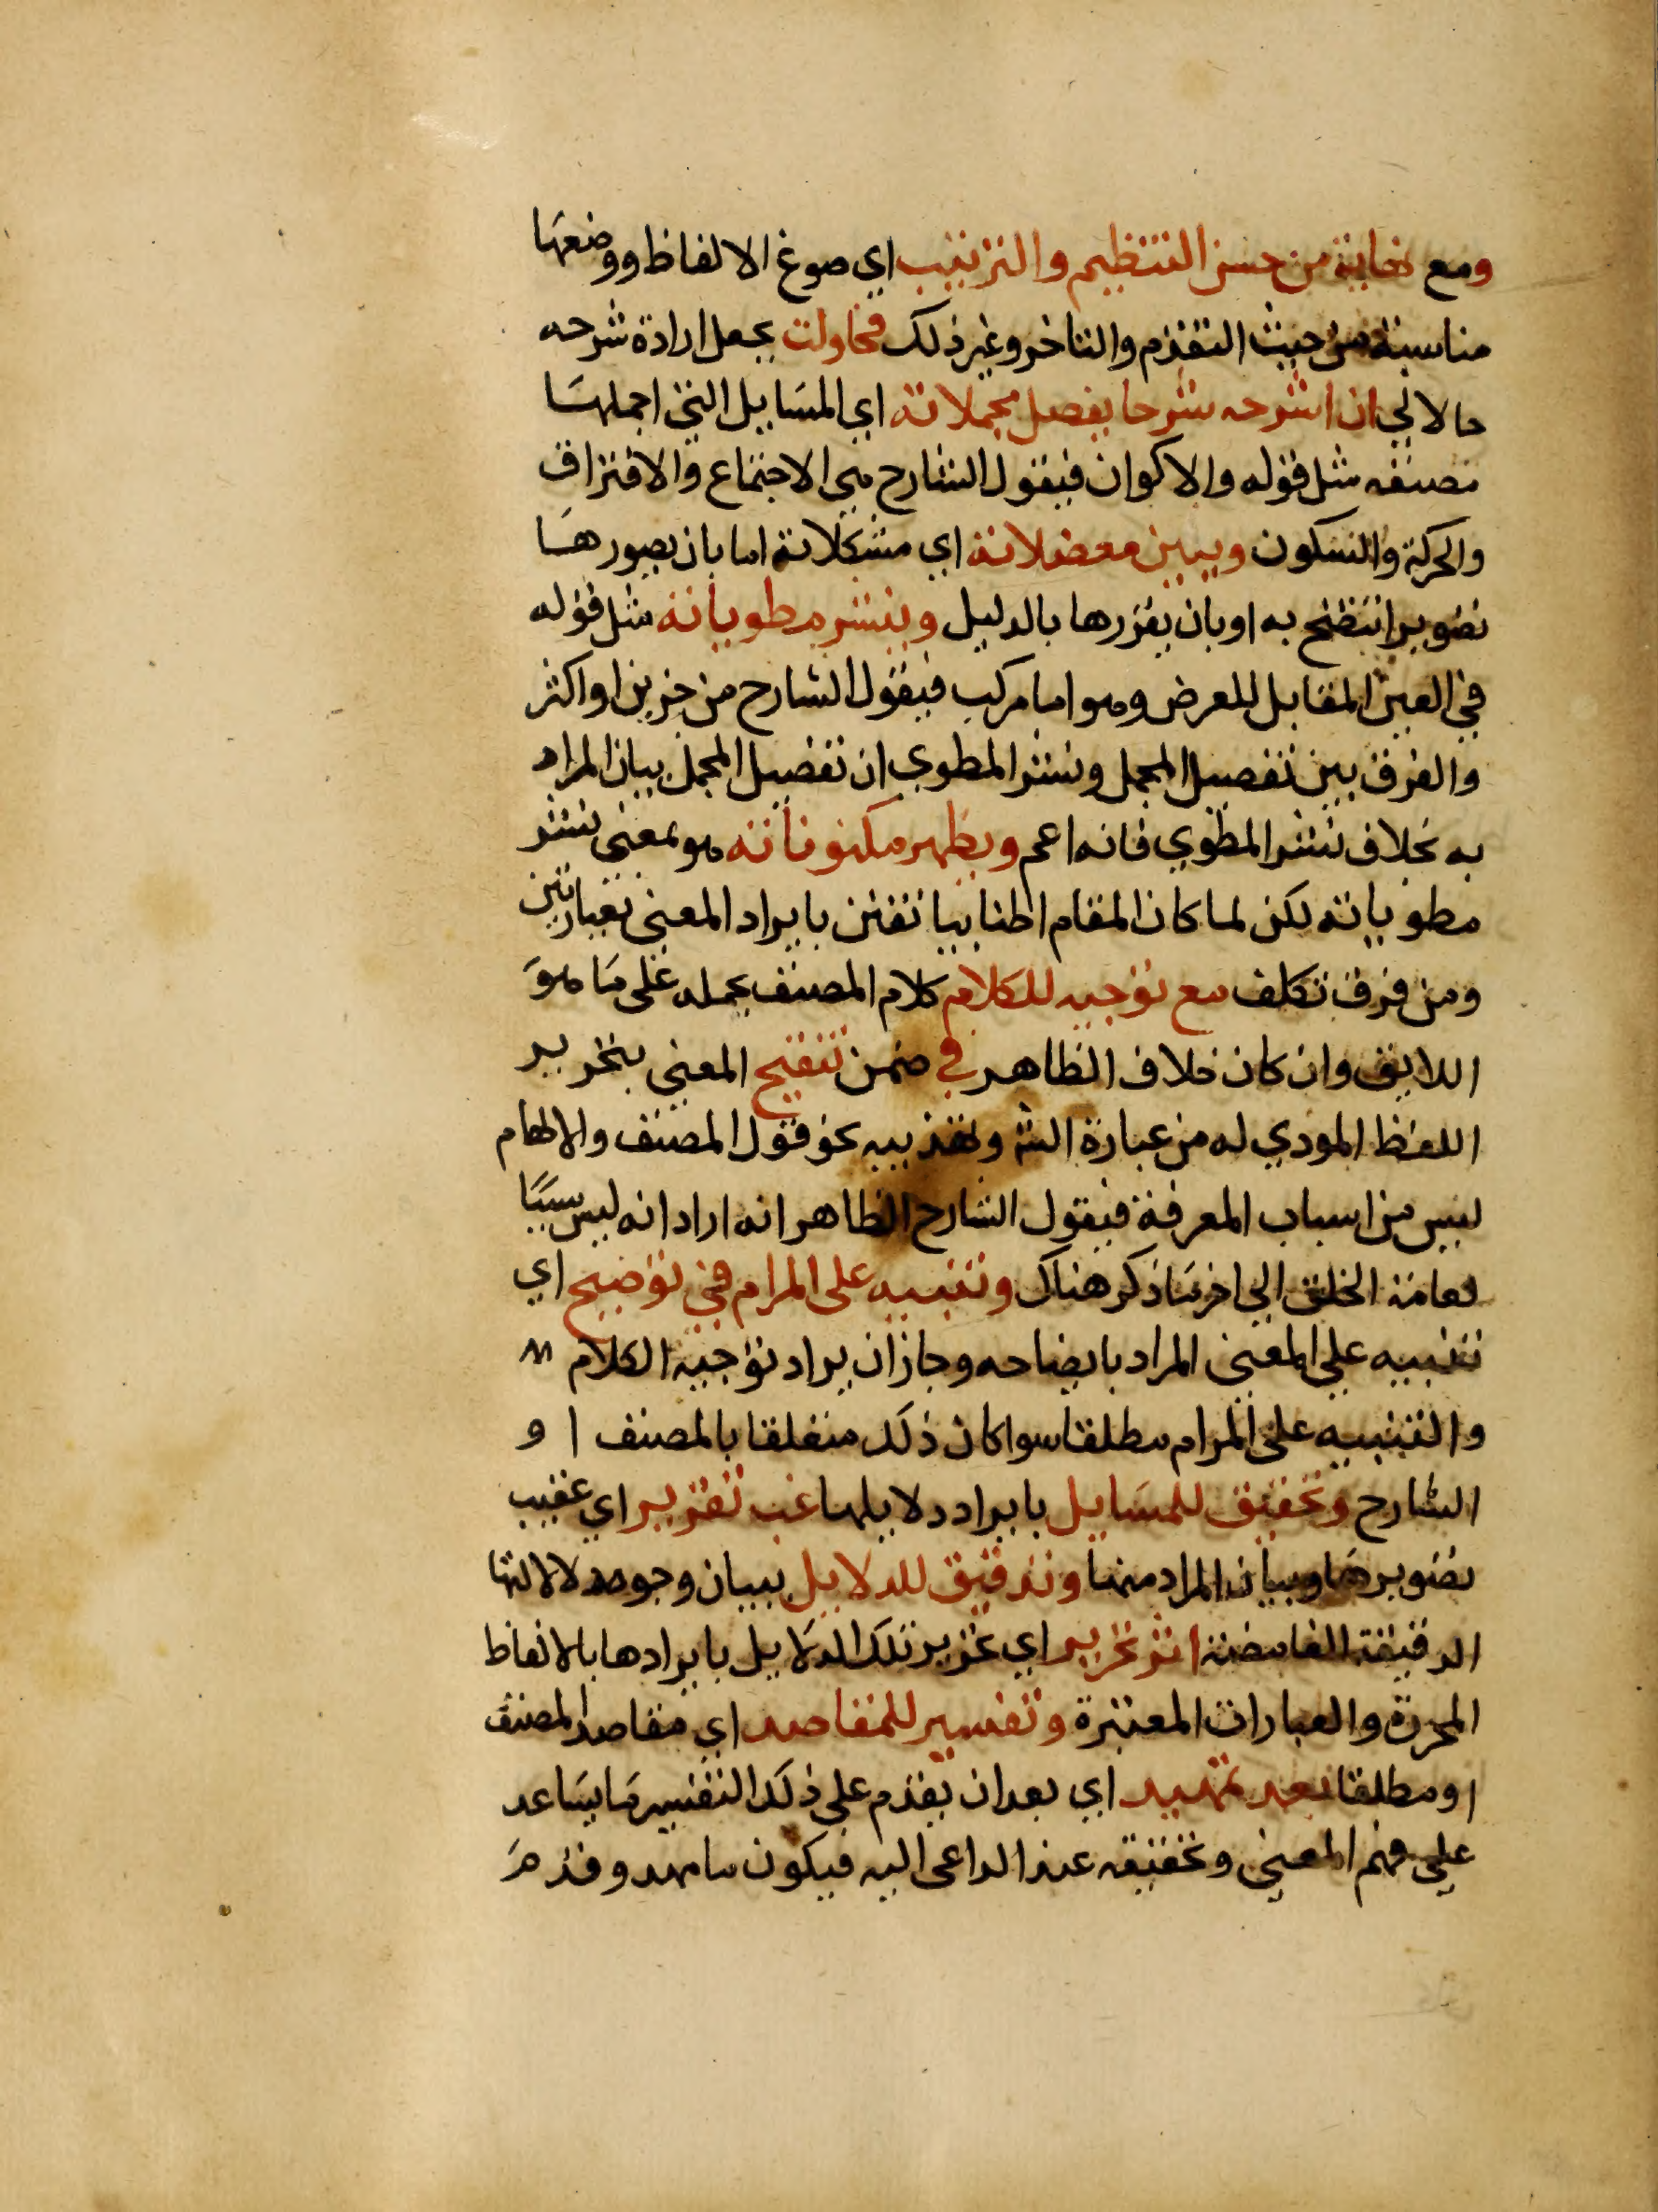 ومع نهاية من حسن التنظيم والترتيب اي صوغ الالفاظ ووضعها
مناسبة من حيث التقدم والتاخر وغير ذلك فحاولت بجعل ارادة شرحه
حالا لي ان اشرحه شرحا يفصل مجملاته اي المسايل التي اجملها
مصنفه مثل قوله والاكوان فيقول الشارح هي الاجتماع والافتراق
والحركة والسكون ويبين معضلاته اي مشكلاته اما بان يصورها
تصويرا تتضح به او بان يقررها بالدليل وينشر مطوياته مثل قوله
في العين المقابل للعرض وهو اما مركب فيقول الشارح من جزين او اكثر
والفرق بين تفصيل المجمل ونشر المطوي ان تفصيل المجمل بيان المراد
به بخلاف نشر المطوي فانه اعم ويظهر مكنوناته هو بمعنى ننشر
مطوياته لكن لما كان المقام اطنابيا تفنن بايراد المعنى بعبارتين
ومن فرق تكلف مع توجيه للكلام كلام المصنف بحمله على ما هو
اللايق وان كان خلاف الظاهر في ضمن تنقيح المعنى بتحرير
اللفظ المودي له من عبارة الش وتهذيبه نحو قول المصنف والالهام
ليس من اسباب المعرفة فيقول الشارح الظاهر انه اراد انه ليس سببا
لعامة الخلق الى اخر ما ذكر هناك وتنبيه على المرام في توضيح اي
تنبيه على المعنى المراد بايضاحه وجاز ان يراد توجيه الكلام
والتنبيه على المرام مطلقا سوا كان ذلك متعلقا بالمصنف او
الشارح وتحقيق للمسايل بايراد دلايلها غب تقرير اي عقيب
تصويرها وبيان المراد منها وتدقيق للدلايل ببيان وجوه دلالالتها
الدقيقة الغامضة اثر تحرير اي تحرير تلك الدلايل بايرادها بالالفاظ
المحررة والعبارات المعتبرة وتفسير للمقاصد اي مقاصد المصنف
او مطلقا بعد تمهيد اي بعد ان يقدم على ذلك التفسير ما يساعد
على فهم المعنى وتحقيقه عند الداعى اليه فيكون ما مهد وقدم